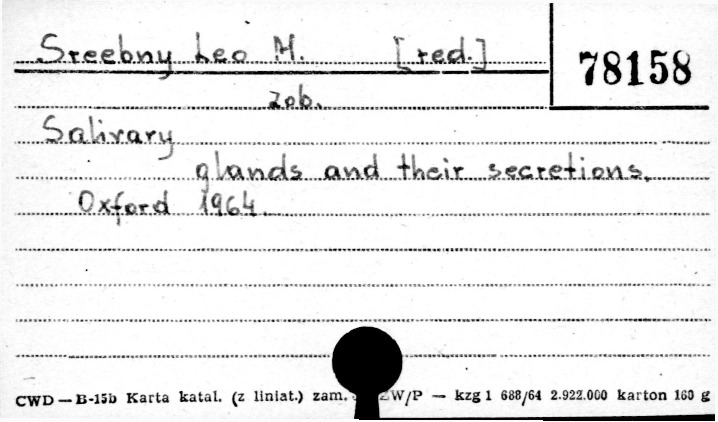 Sreebny Leo M. [red.]
78158
zob.
Salivary
glands and their secretions.
Oxford 1964.
CWD — B-15b Karta katal. (z liniat.) zam. ZW/P — kzg 1 688/64 2.922.000 karton 160 g